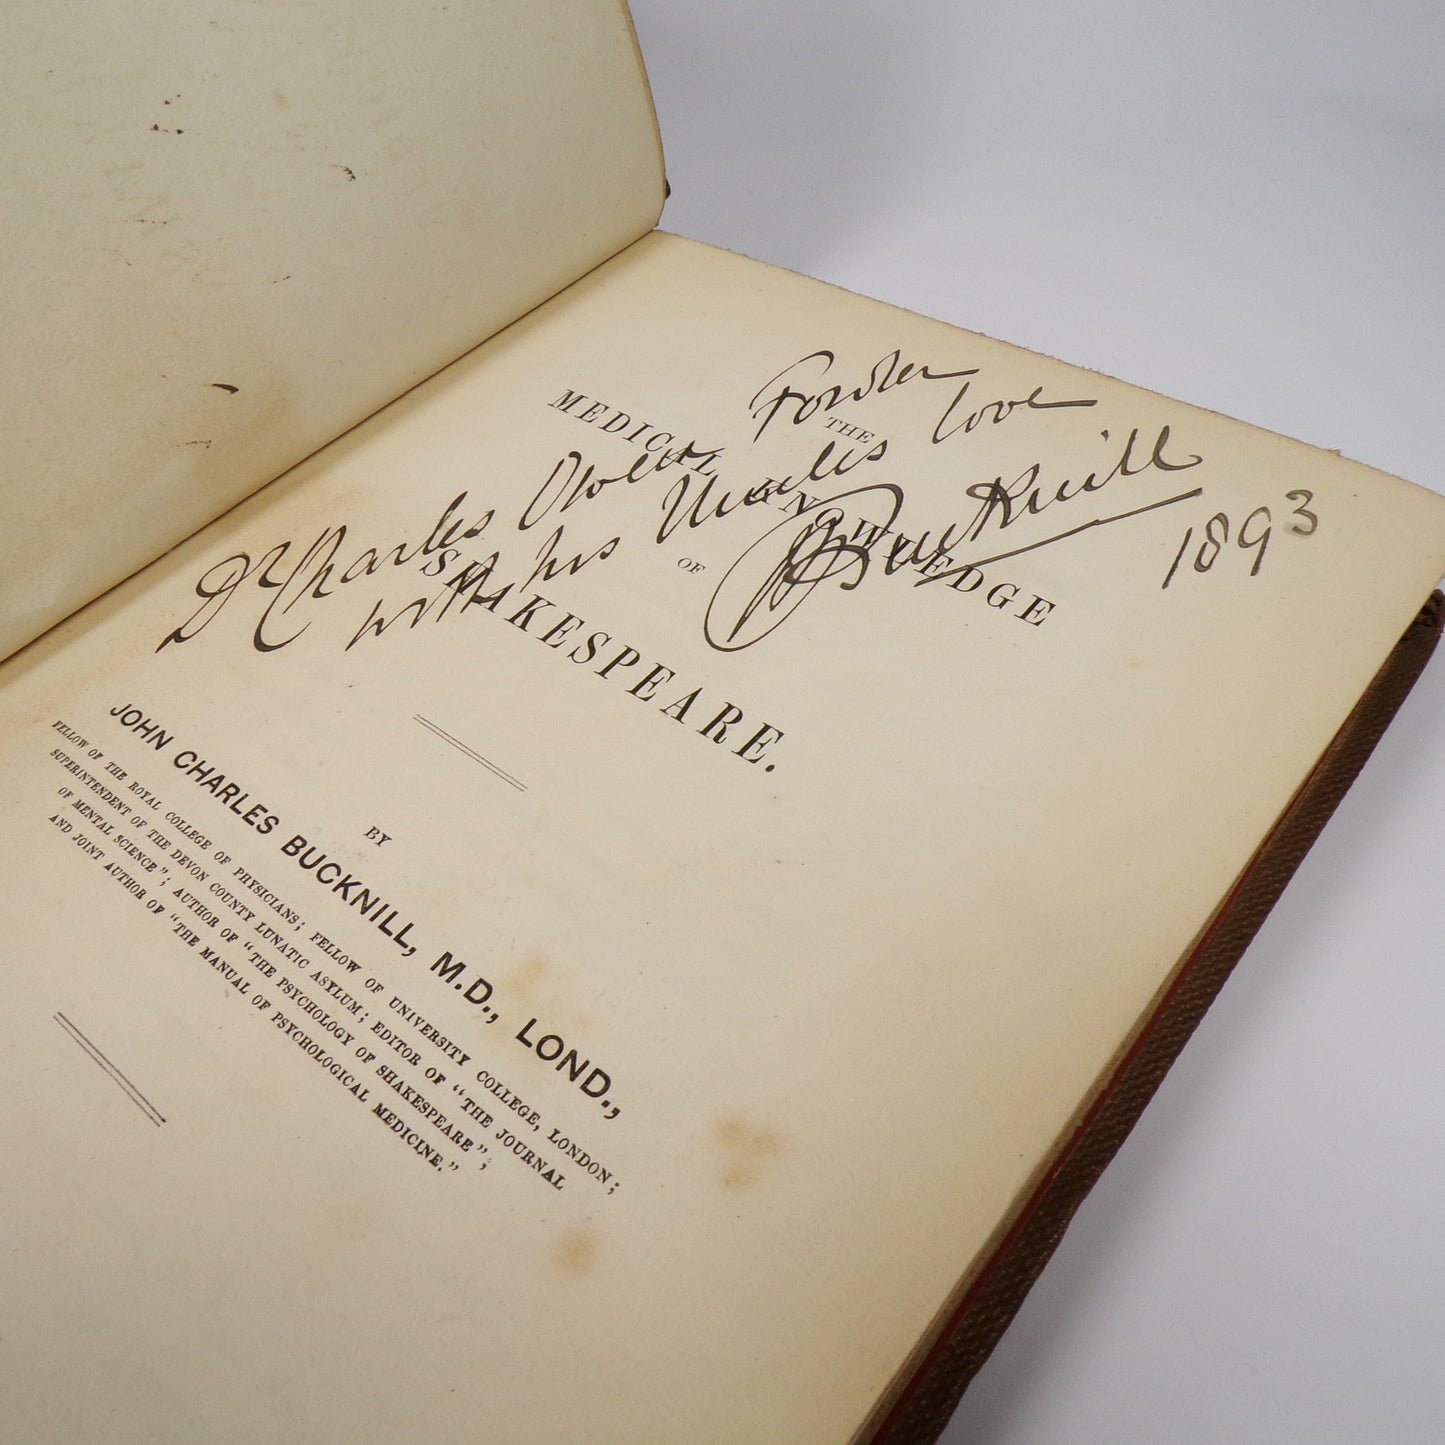 THE
MEDICAL KNOWLEDGE
OF
SHAKESPEARE.
Dr Charles Owens Fowler
with his Uncles love
JCBucknill
1893
BY
JOHN CHARLES BUCKNILL, M.D., LOND.,
FELLOW OF THE ROYAL COLLEGE OF PHYSICIANS; FELLOW OF UNIVERSITY COLLEGE, LONDON;
SUPERINTENDENT OF THE DEVON COUNTY LUNATIC ASYLUM; EDITOR OF "THE JOURNAL
OF MENTAL SCIENCE"; AUTHOR OF "THE PSYCHOLOGY OF SHAKESPEARE";
AND JOINT AUTHOR OF "THE MANUAL OF PSYCHOLOGICAL MEDICINE."